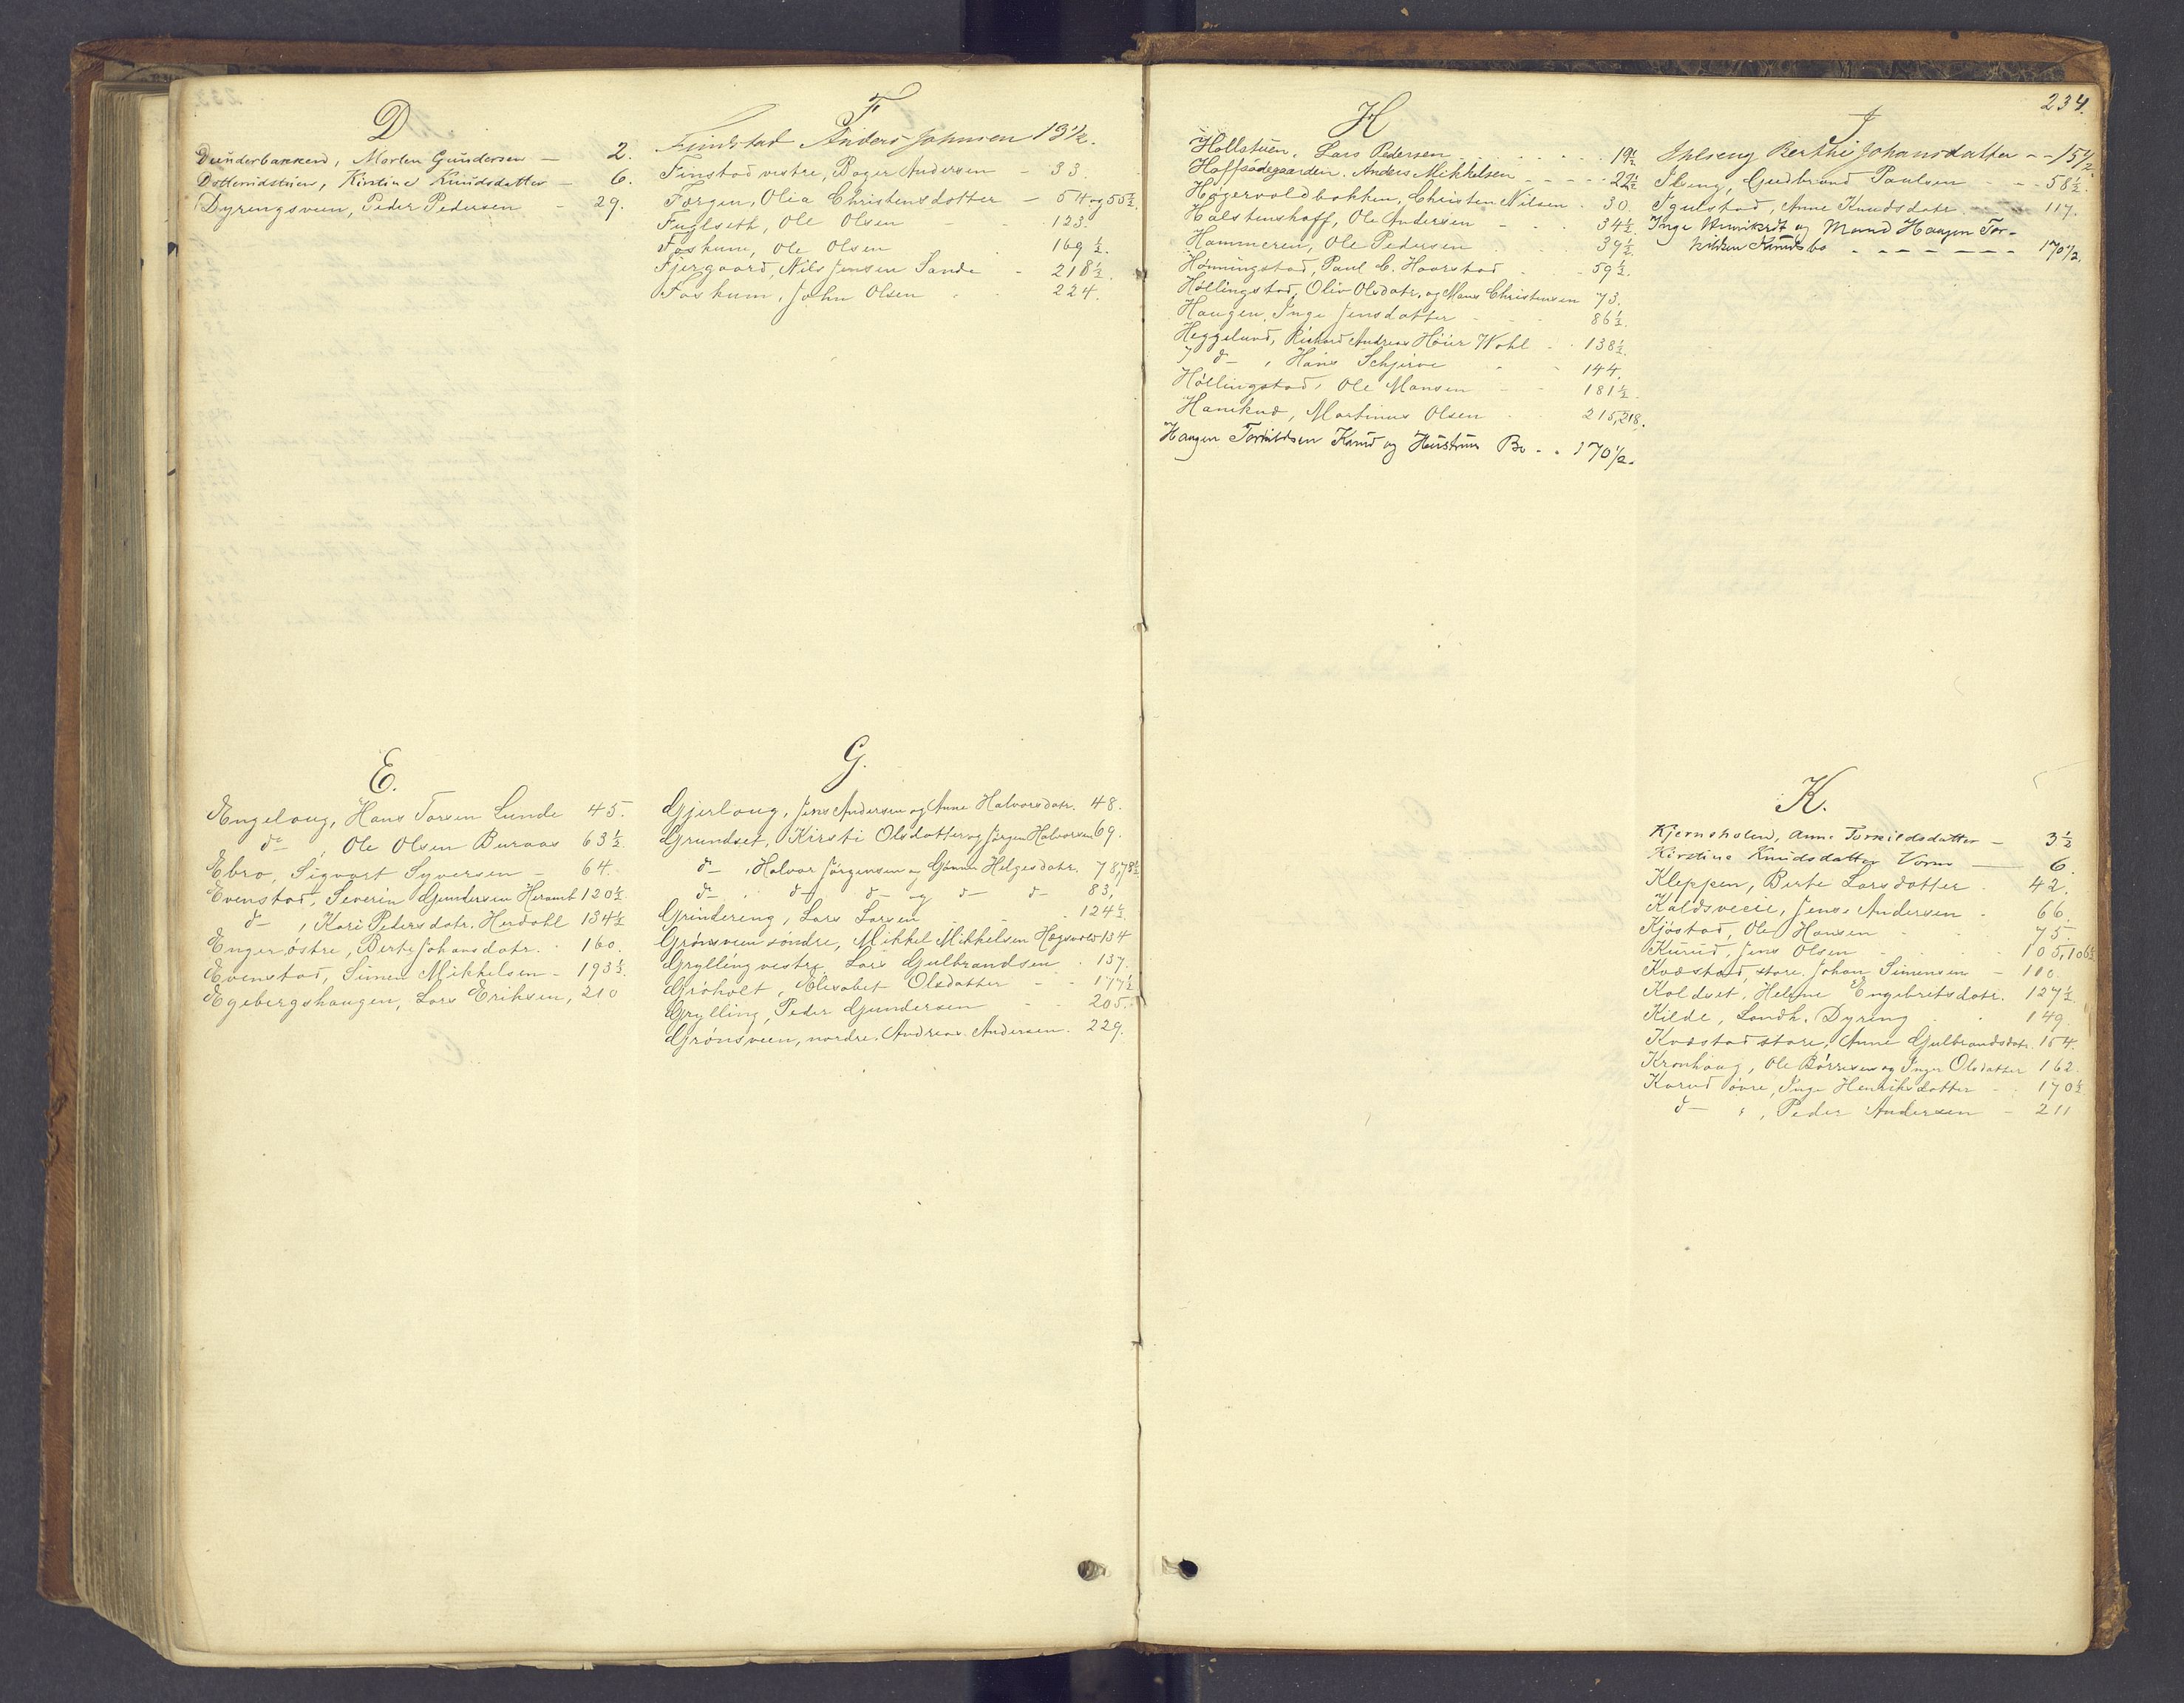 D
Dunderbakken, Morten Gundersen — 2.
Dottemdstuen, Kirstine Knudsdatter — 6.
Dyrengsveen, Peder Pedersen — 29.
E.
Engelaug, Hans Torsen Lunde 45.
d⁰ — , Ole Olsen Buraas 63½
Ebro, Sigvart Syversen — 64.
Evenstad, Severin Gundersen Heramb 120½
d — , Kari Pedersdatr. Herdahl 134½
Enger östre, Berte Johansdatr. 160.
Evenstad, Simen Mikkelsen — 193½.
Egebergshaugen, Lars Eriksen, 210
F
Findstad Anders Johnsen 13½.
Finstad vestre, Boger Andersen — 33.
Færgen, Olea Christensdatter — 54 og 55½.
Fuglseth, Ole Olsen — 123.
Foskum, Ole Olsen 169½.
Fjergaard, Nils Jensen Sande — 218½.
Foskum, John Olsen 224.
G.
Gjerloug, Jens Andersen og Anne Halvorsdatr. 48.
Grundset, Kirsti Olsdatter og Jørgen Halvorsen 69.
d — , Halvor Jørgensen og Gunner Helgesdatr. 78, 78½
d — , d — d — og d — d — 83,
Grindereng, Lars Larsen — 124½.
Grønsveen söndre, Mikkel Mikkelsen Hogsveld 134
Grylling vestre, Lars Gulbrandsen . 137.
Gröholt, Elisabet Olsdatter — 177½
Grylling, Peder Gundersen — 205.
Grönsveen, nordre. Andreas Andersen. 229.
234.
H
Hollstuen, Lars Pedersen 19½
Hoffsödegaarden. Anders Mikkelsen — 22½
Högervoldbakken, Christen Nilsen . 30.
Halstenshoff, Ole Andersen — 34½.
Hammeren, Ole Pedersen 39½.
Hönningstad, Paul C. Haarstad 59½.
Höllingstad, Oliv Olsdatr. og Mons Christensen 73.
Haugen, Inge Jensdatter 86½.
Heggelund, Rickard Andreas Höier Wohl . 138½.
d — , Hans Schjerve 144.
Höllingstad, Ole Mansen — 181½.
Hanekud, Martinus Olsen . 215, 218.
Haagen Torkildsen Knud og Hustrues Bo . . 170½.
I
Ihlseng Berthe Johansdatter — 15½
Ilseng, Gudbrand Paulsen — 58½.
Igulstad, Anne Knudsdatr. 117.
Inge Henriksdt og Mand Haagen Tor-
kildsen Knuds bo — 170½.
K.
Kjernsholen, Anne Torkildsdatter — 3½
Kirstine Knudsdatter Vorm — 6.
Kleppen, Berte Larsdatter . 42.
Kaldsveeie, Jens Andersen . 66.
Kjöstad, Ole Hansen . 75.
Kurud, Jens Olsen . 105, 106½
Kvæstad, store. Johan Simensen — 110.
Koldset, Helene Engebretsdatr. 127½.
Kilde, Landh. Dyring . 149.
Kvæstad store, Anne Gulbrandsdatr. 154.
Kronhaug, Ole Börresen og Inger Olsdatter 162.
Korud övre, Inge Henriksdatter — 170½
d — , Peder Andersen — 211